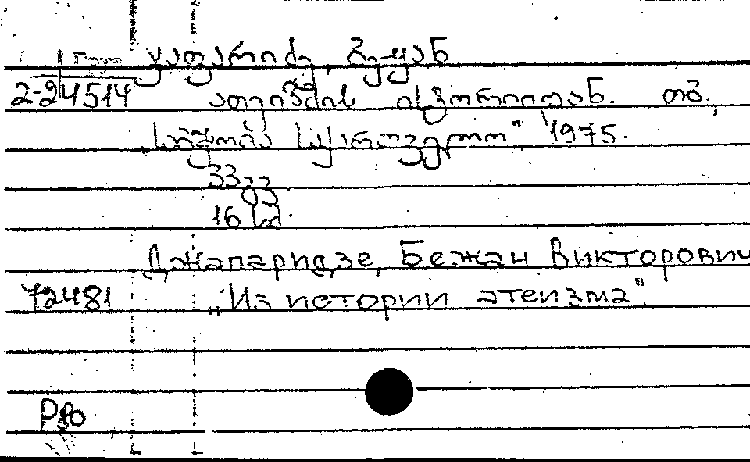 ჯაფარიძე, ბეჟან
2-24514 ათეიზმის ისტორიიდან. თბ.,
„საბჭოთა საქართველო“ 1975.
33გვ.
16
Джапаридзе, Бежан Викторович
72481 „Из истории атеизма“.